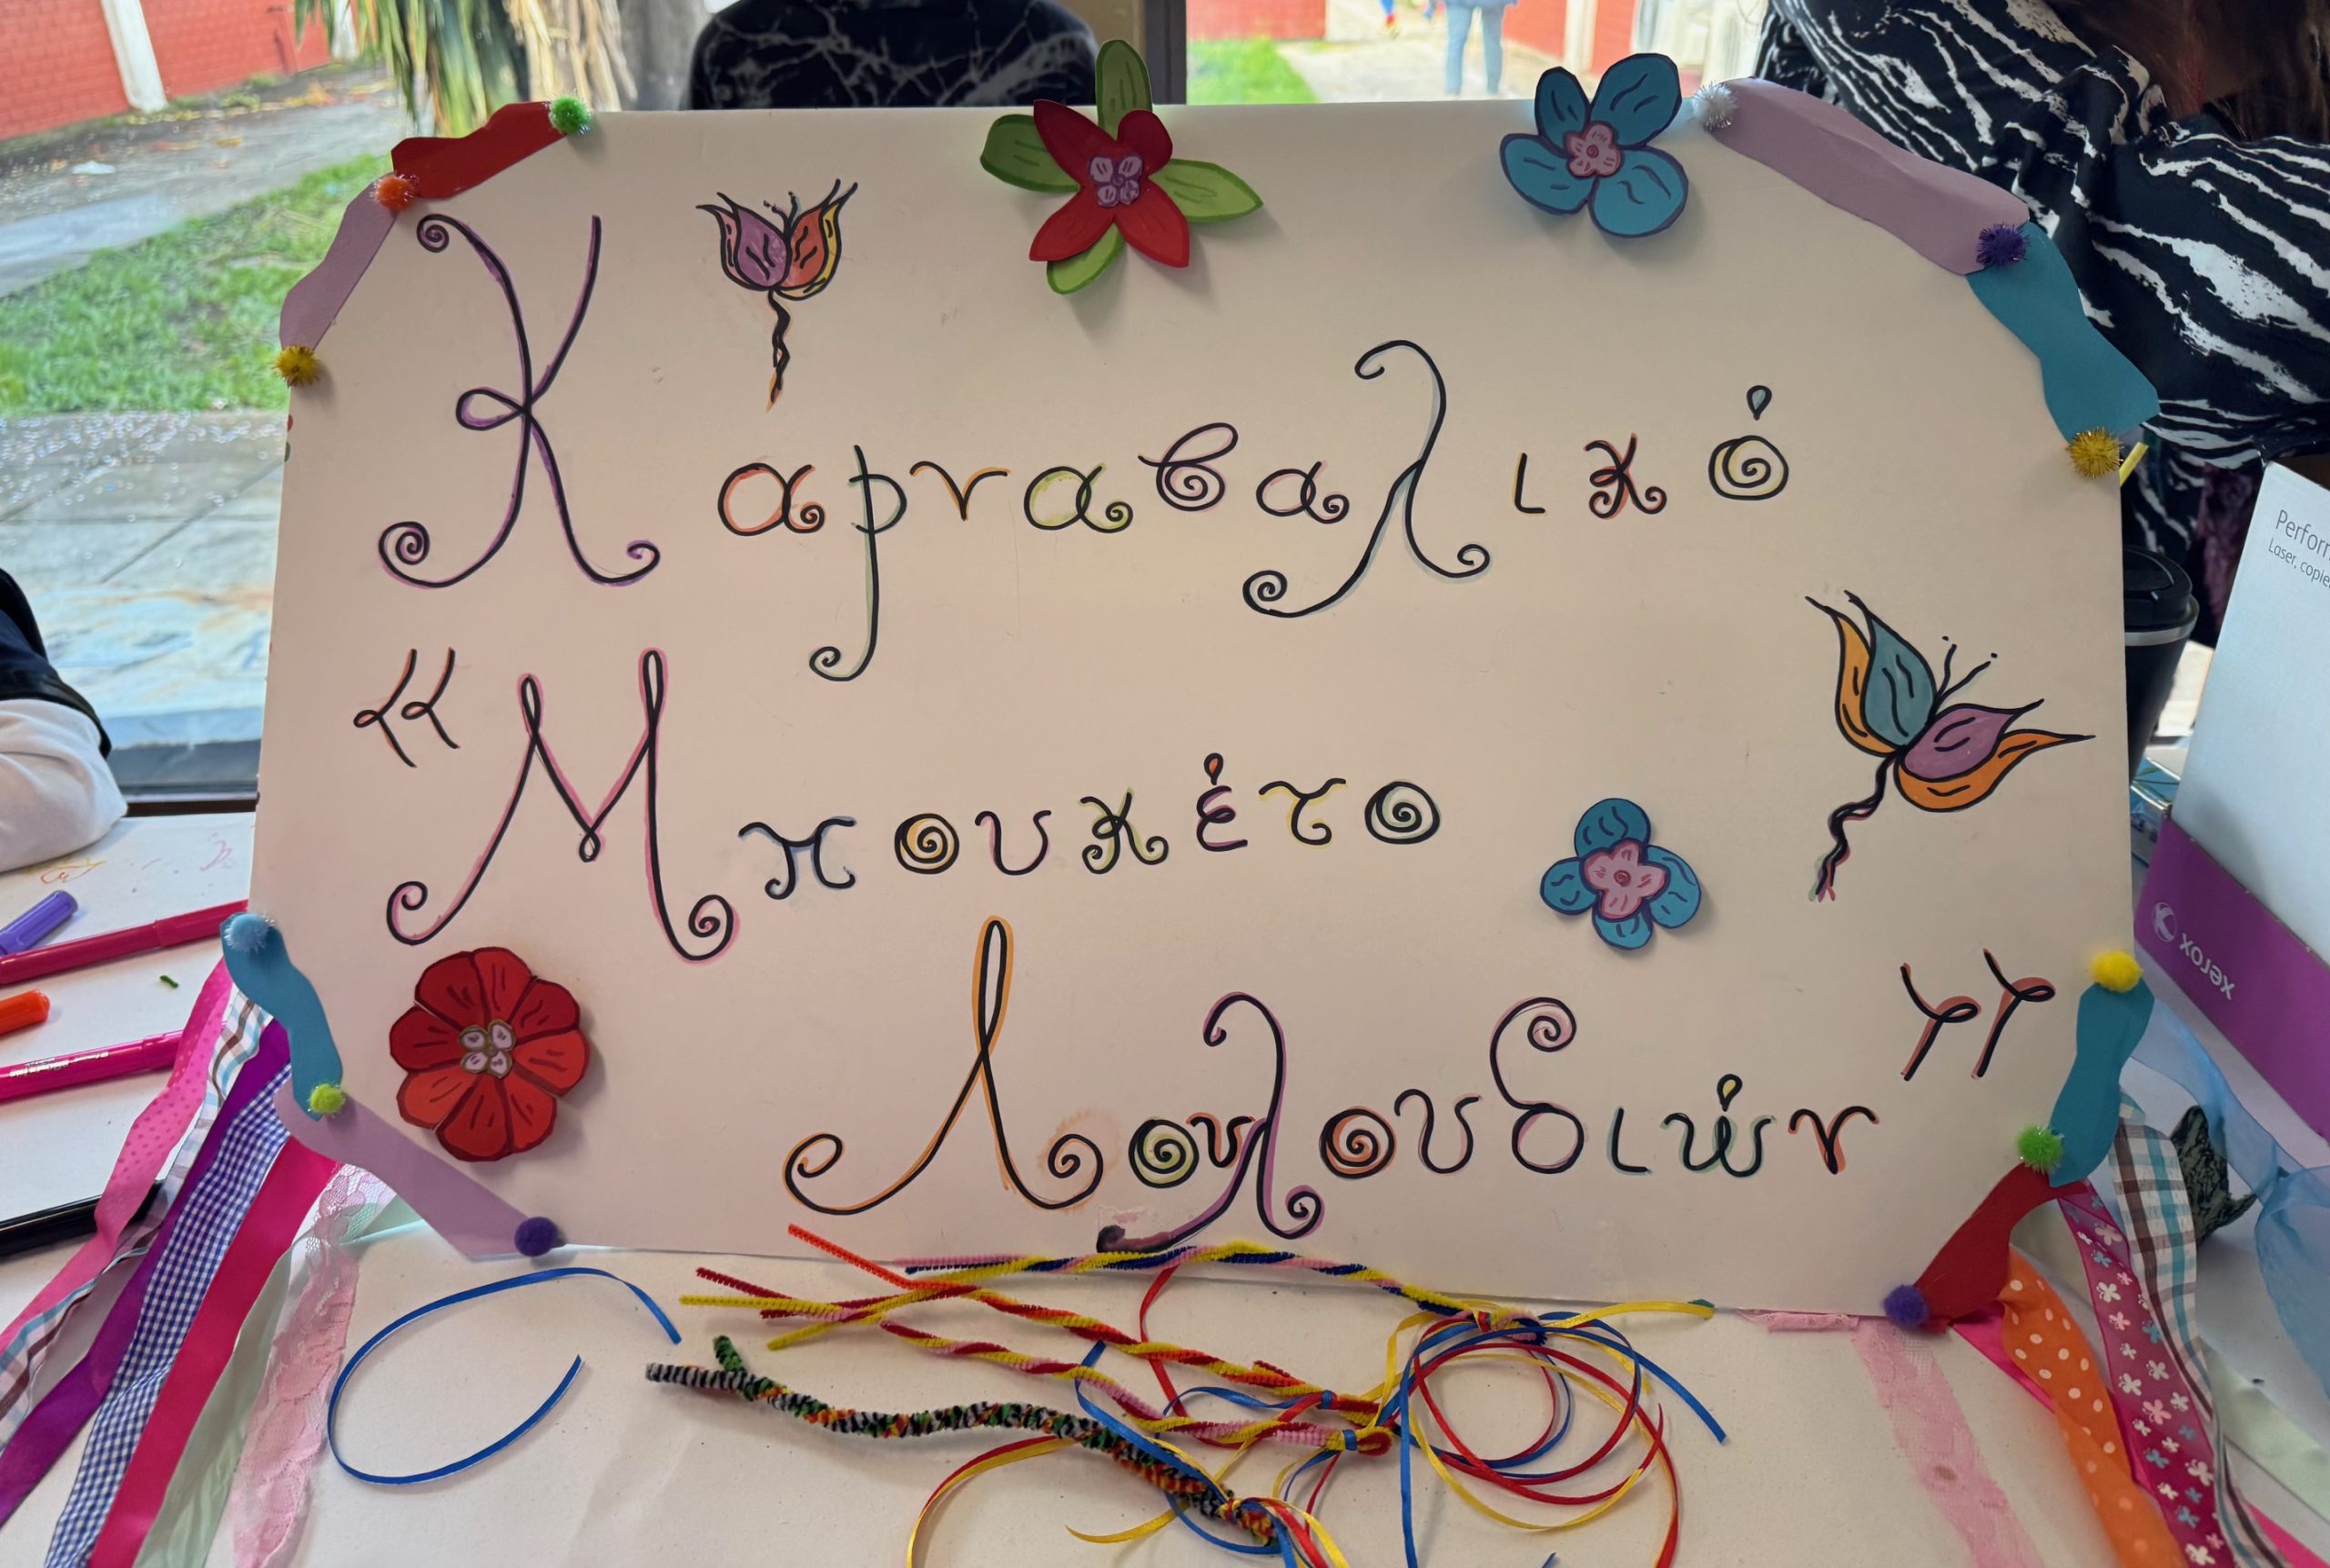 Καρναβαλικό
«Μπουκέτο
Λουλουδιών»
Perfor
Laser, copie
xerox